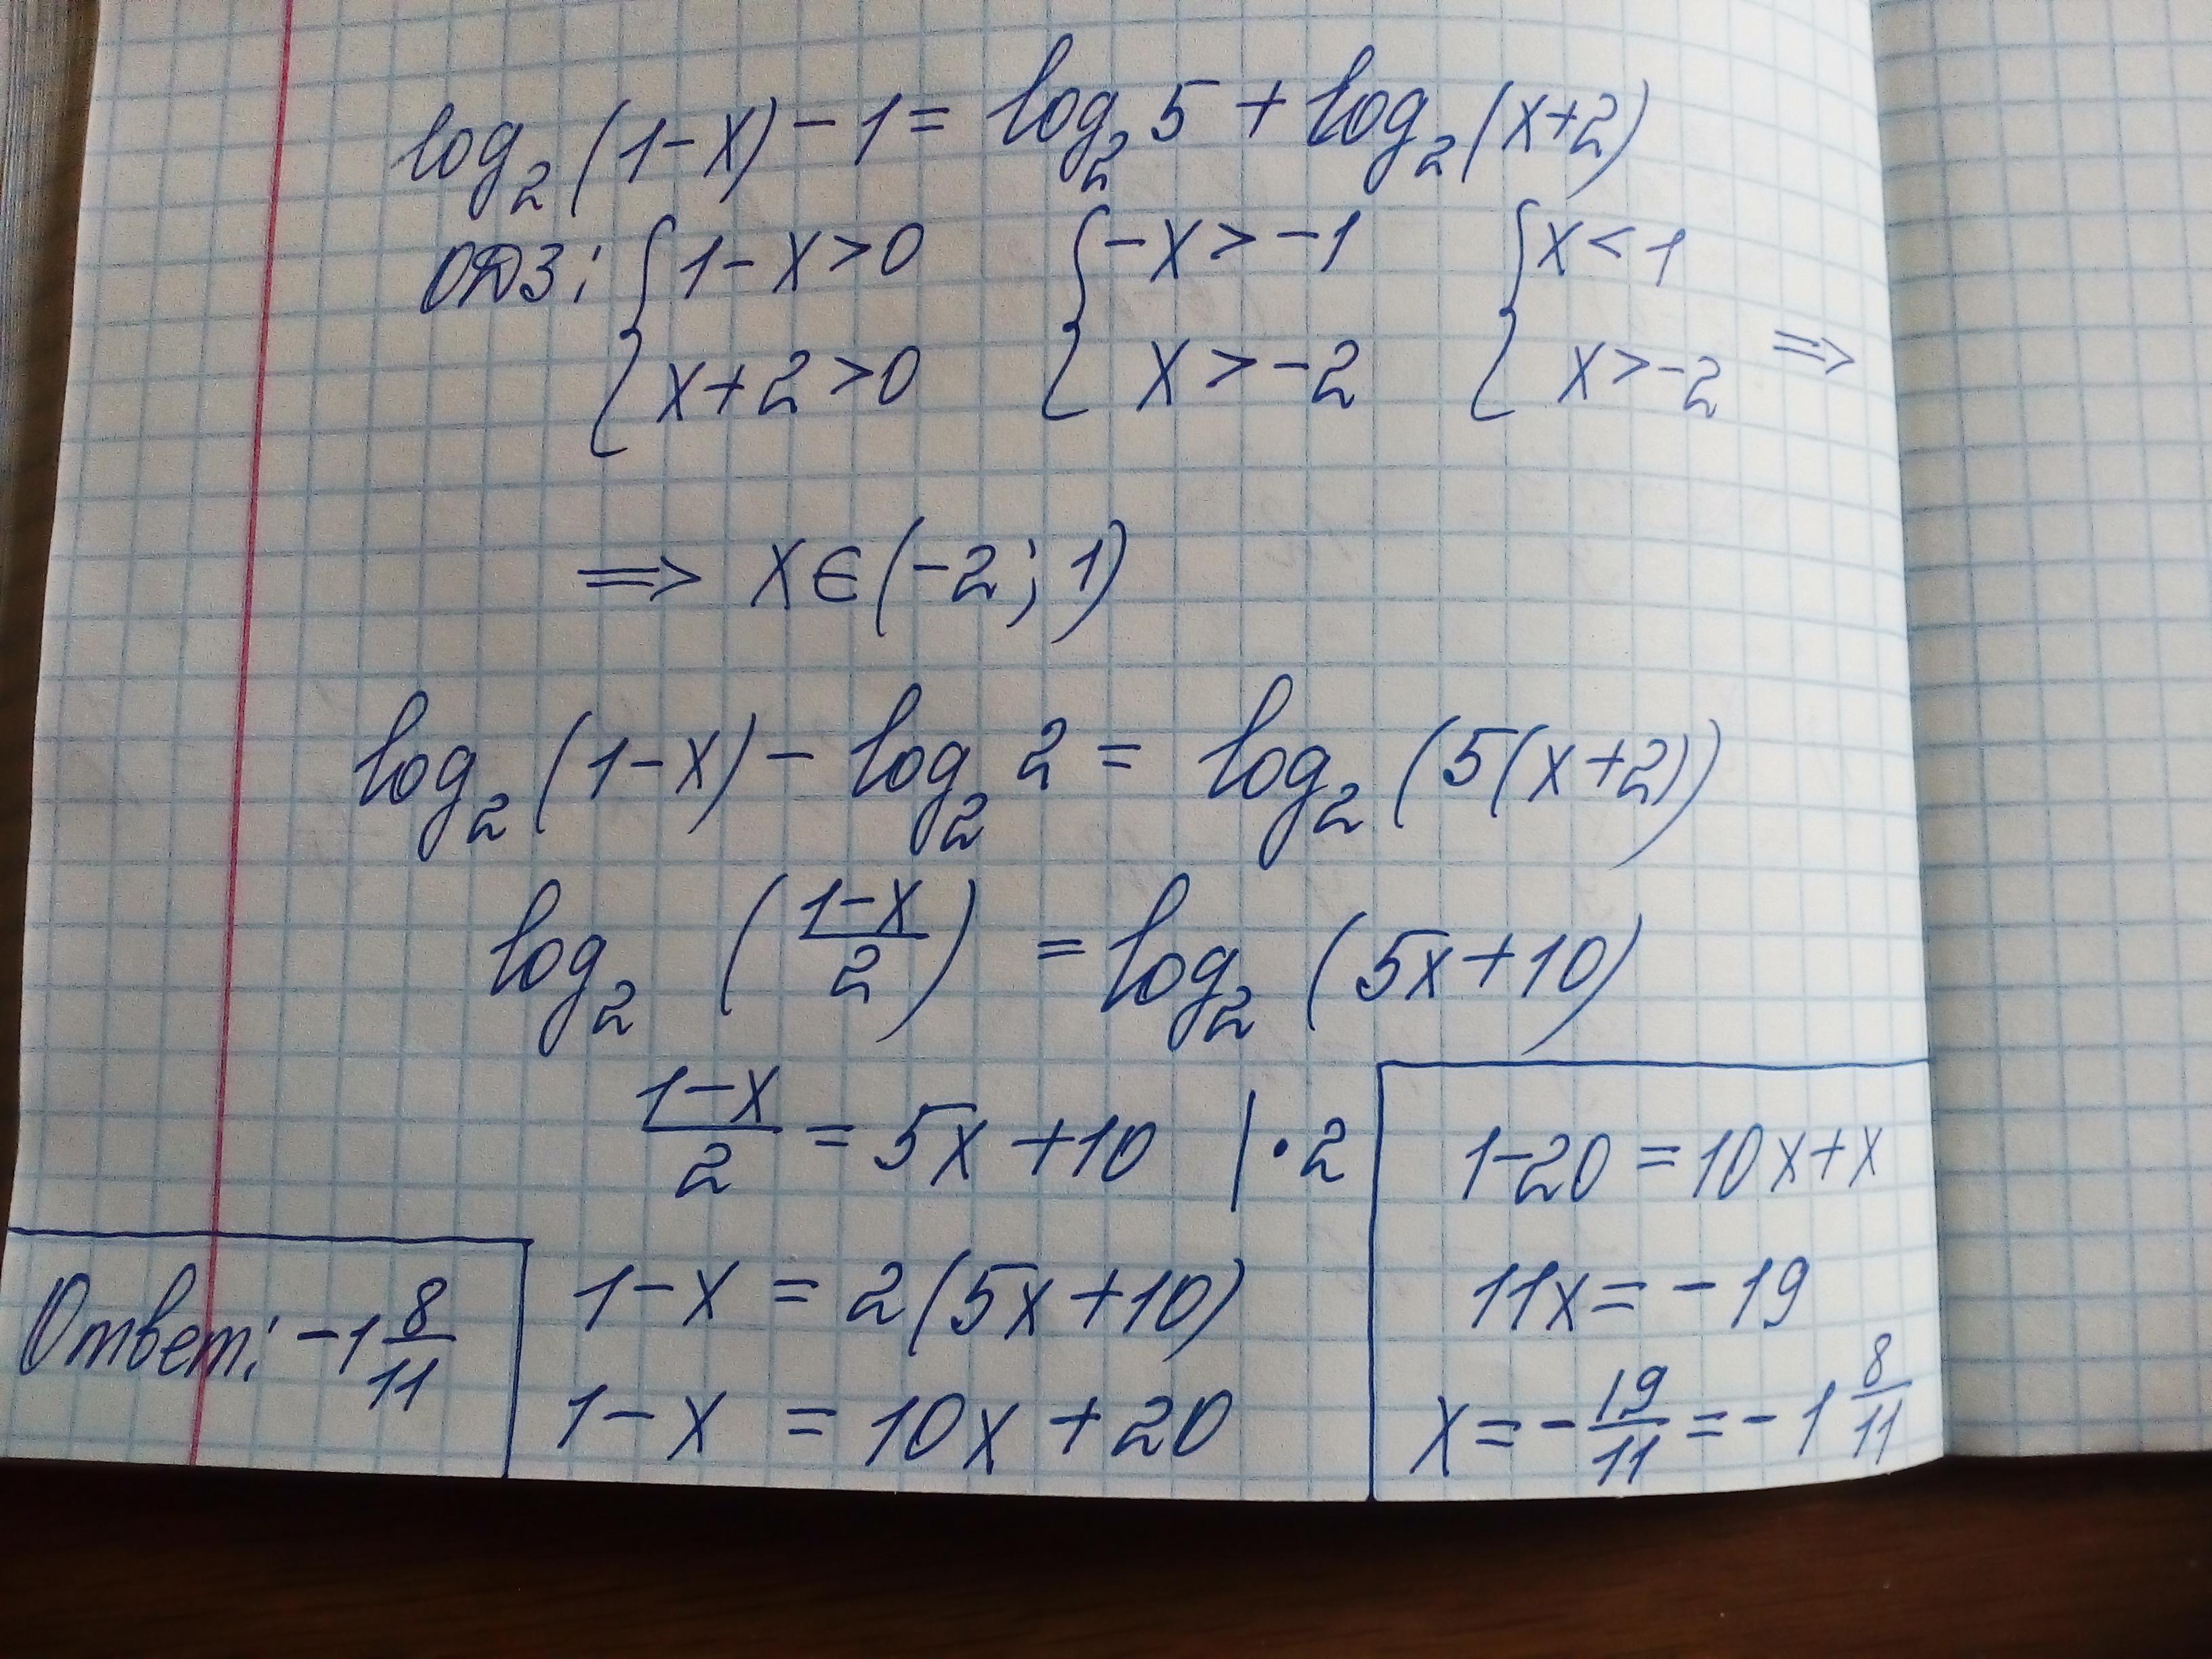 log₂(1-x)-1=log₂5+log₂(x+2)
ОДЗ: { 1-x>0 { -x>-1 { x<1
{ x+2>0 { x>-2 { x>-2 ⇒
⇒ x∈(-2;1)
log₂(1-x)-log₂2=log₂(5(x+2))
log₂((1-x)/2)=log₂(5x+10)
(1-x)/2=5x+10 |·2
1-x=2(5x+10)
1-x=10x+20
1-20=10x+x
11x=-19
x=-19/11=-1 8/11
Ответ: -1 8/11